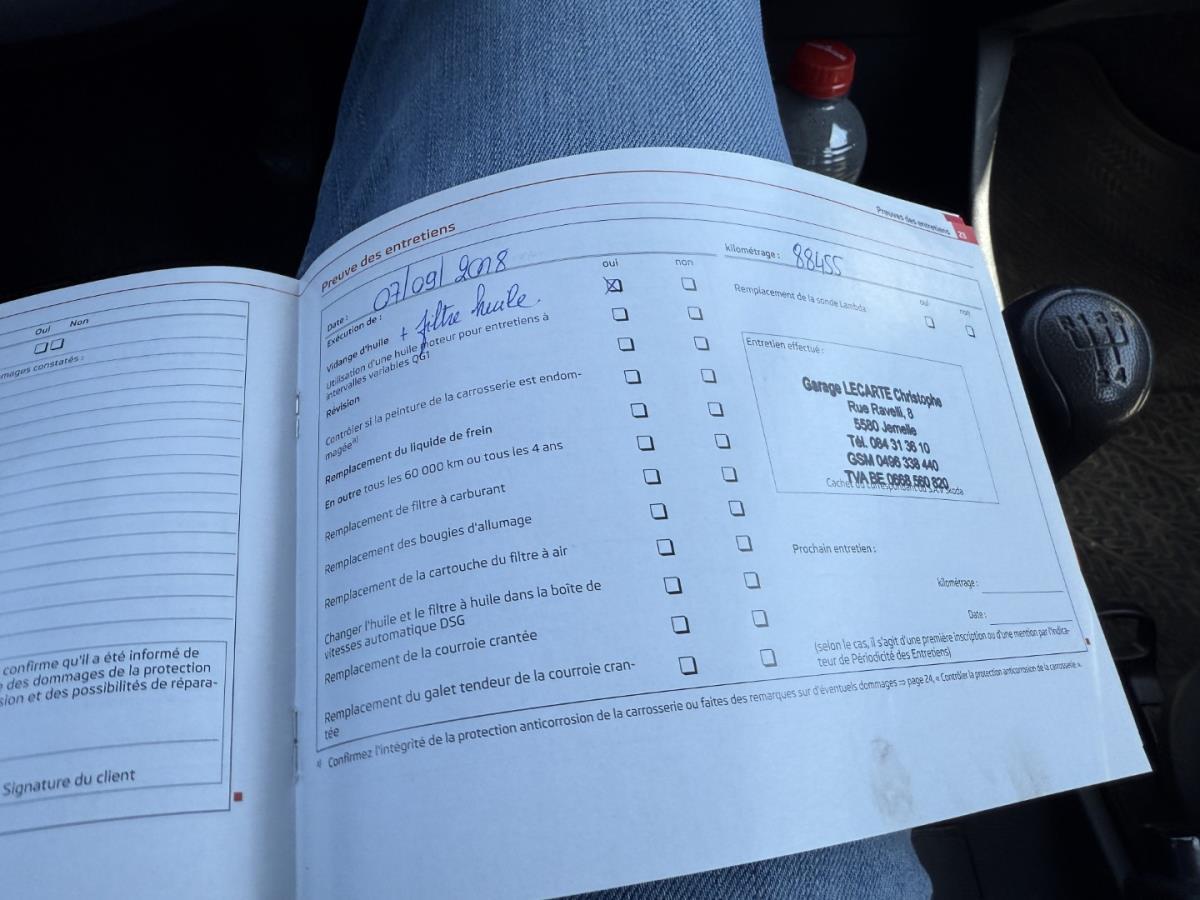 Oui Non
mages constatés :
confirme qu'il a été informé de
des dommages de la protection
sion et des possibilités de répara-
Signature du client
Preuves des entretiens 23
Preuve des entretiens
Date : 07/09/2018
kilométrage : 88455
Exécution de : oui non
Vidange d'huile + filtre huile.
Utilisation d'une huile moteur pour entretiens à
intervalles variables QG1
Révision
Contrôler si la peinture de la carrosserie est endom-
magée a)
Remplacement du liquide de frein
En outre tous les 60 000 km ou tous les 4 ans
Remplacement de filtre à carburant
Remplacement des bougies d'allumage
Remplacement de la cartouche du filtre à air
Changer l'huile et le filtre à huile dans la boîte de
vitesses automatique DSG
Remplacement de la courroie crantée
Remplacement du galet tendeur de la courroie cran-
tée
oui non
Remplacement de la sonde Lambda
Entretien effectué :
Garage LECARTE Christophe
Rue Ravelli, 8
5580 Jemelle
Tél. 084 31 36 10
GSM 0496 338 440
TVA BE 0668 560 820
Cachet du correspondant du S.A.V Škoda
Prochain entretien :
kilométrage :
Date :
(selon le cas, il s'agit d'une première inscription ou d'une mention par l'Indica-
teur de Périodicité des Entretiens)
a) Confirmez l'intégrité de la protection anticorrosion de la carrosserie ou faites des remarques sur d'éventuels dommages ⇒ page 24, « Contrôler la protection anticorrosion de la carrosserie ».
R 1 3 5
2 4